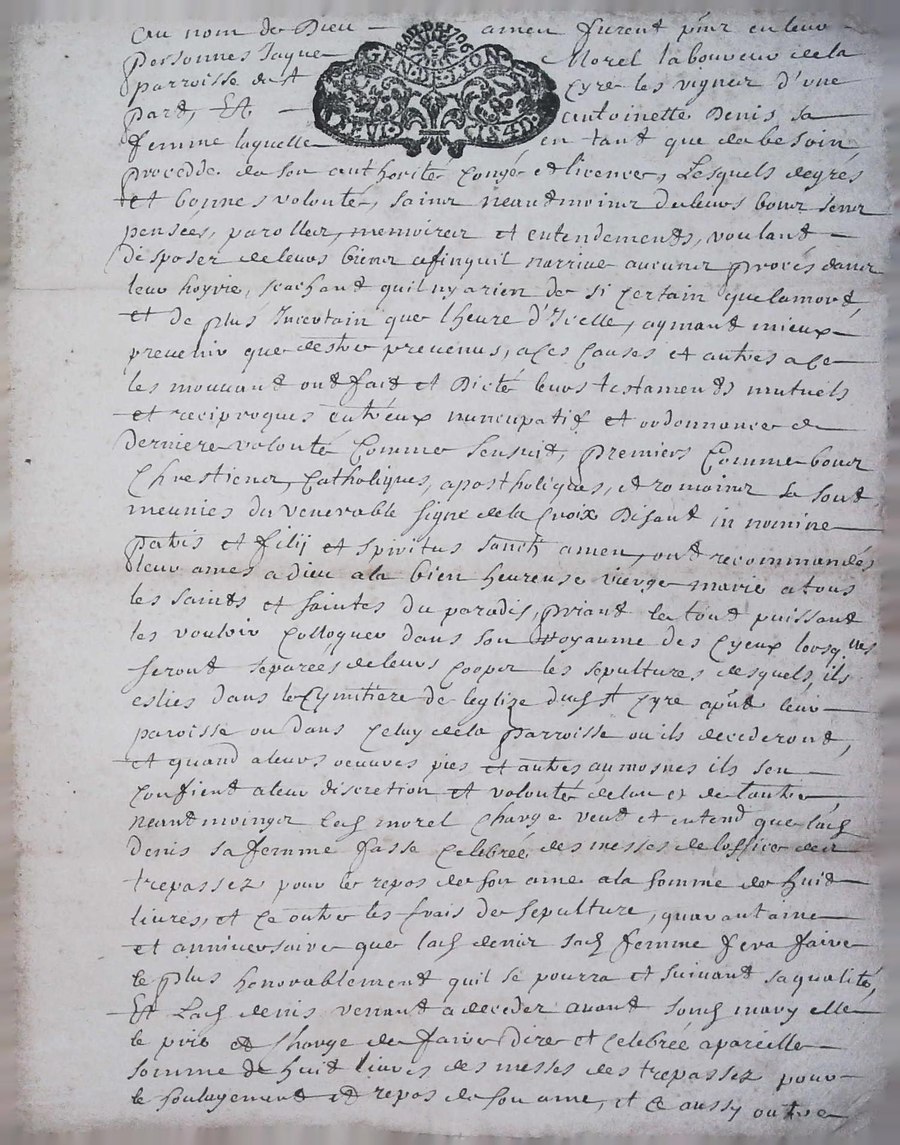 Au nom de Dieu amen furent pñts en leur
personnes Jaque Morel laboureur de la
parroisse de St Cyre les vignes d'une
part, Et Antoinette Denis sa
femme laquelle en tant que de besoin
procedde de son authorité congé et licence, Lesquels de grés
et bonnes volonté, sains neantmoins de leurs bons sens
pensées, parolles, memoires et entendements, voulant
disposer de leurs biens afin quil narrive aucuns procés dans
leur hoyrie, scachant quil ny a rien de si certain que la mort
et de plus Incertain que lheure d'Icelle, aymant mieux
prevenir que destre prevenus, a ces causes et autres a ce
les mouvant ont fait et Dicté leurs testaments mutuels
et reciproques entreux nuncupatif et ordonnance de
derniere volonté Comme sensuit, Premiers Comme bons
Chrestiens, Catholiques, apostholiques, et romains se sont
meunies du venerable signe de la Croix Disant in nomine
patris et filij et spiritus sancti amen, ont recommandés
leur ames a dieu a la bien heureuse vierge marie a tous
les saints et saintes du paradis, priant le tout puissant
les vouloir Colloquer dans son Royaume des Cyeux lorsq'elles
seront separées de leurs Coops les sepultures desquels, ils
eslies dans le Cymitiere de leglise dud St Cyre apñt leur
paroisse ou dans Celuy de la Parroisse ou ils decederont,
et quand a leurs oeuvres pies et autres aumosnes ils sen
confient a leur discretion et volonté de lun et de lautre
neantmoings led morel charge veut et entend que lad
denis sa femme fasse Celebré des messes de loffice des
trepassez pour le repos de son ame a la somme de huit
livres, et ce outre les frais de sepulture, quarantaine
et anniversaire que lad denis sad femme fera faire
le plus honorablement quil se pourra et suivant sa qualité,
Et Lad denis venant a deceder avant sond mary elle
le prie et charge de faire dire et celebré a pareille
somme de huit livres des messes des trepassez pour
le soulagement et repos de son ame, et ce aussy outre
GEN·DE·LYON